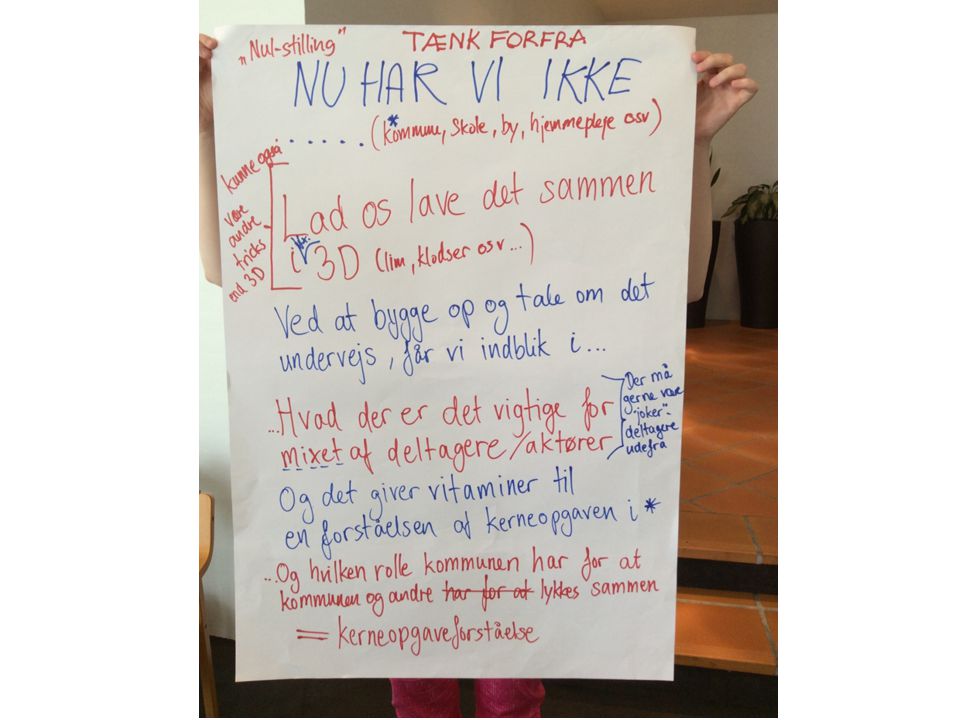 „Nul-stilling" TÆNK FORFRA
NU HAR VI IKKE
..... (k*ommune, skole, by, hjemmepleje osv)
kunne også
være
andre
tricks
end 3D
Lad os lave det sammen
i 3D (lim, klodser osv...)
Ved at bygge op og tale om det
undervejs, får vi indblik i...
...Hvad der er det vigtige for
mixet af deltagere/aktører
Der må
gerne være
"joker"-
deltagere
udefra
Og det giver vitaminer til
en forståelsen af kerneopgaven i *
...Og hvilken rolle kommunen har for at
kommunen og andre har for at lykkes sammen
= kerneopgaveforståelse